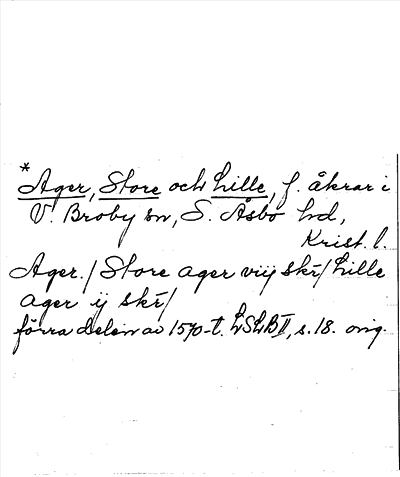 * Ager, Store och Lille, f. åkrar i
V. Broby sn, S. Åsbo hd,
Krist. l.
Ager. / Store ager vij skr̄ / Lille
ager ij skr̄ /
förra delen av 1570-t. LSLB II, s. 18. orig.